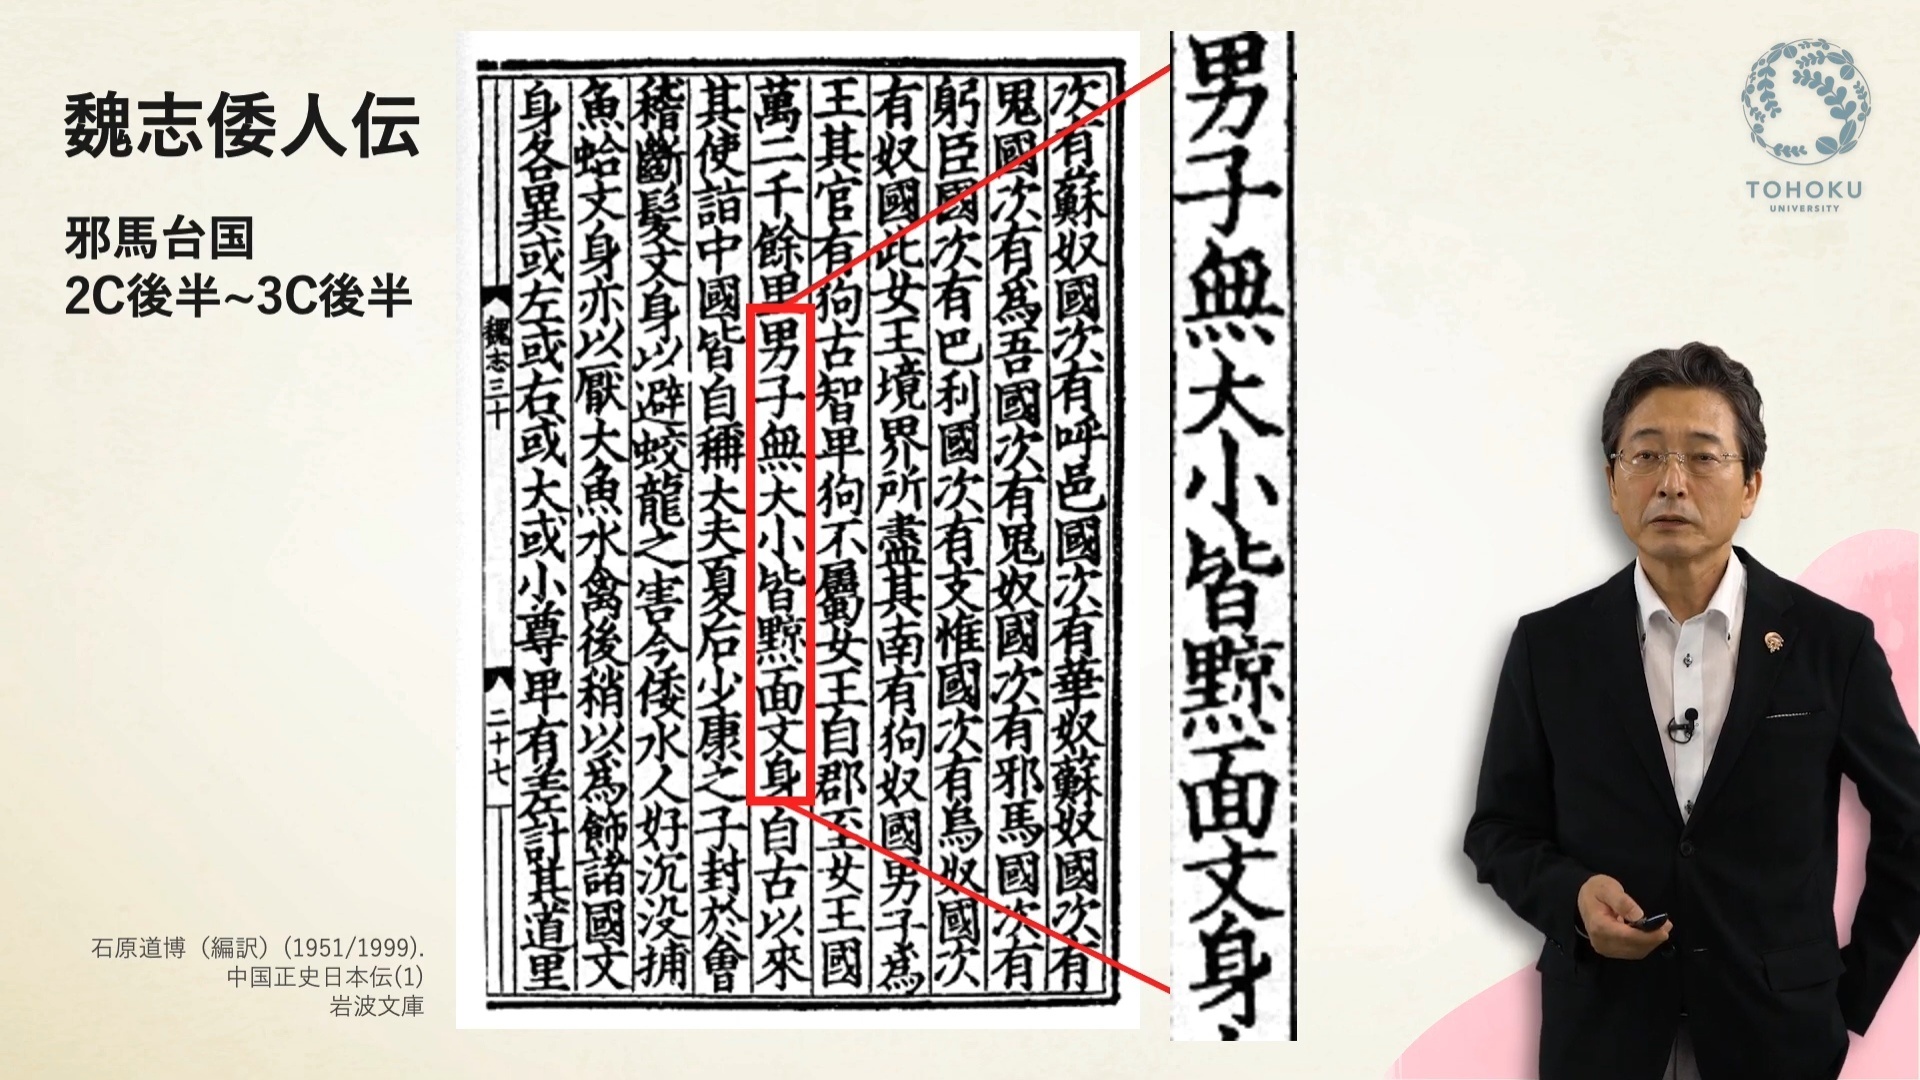 魏志倭人伝
邪馬台国
2C後半~3C後半
次有蘇奴國次有呼邑國次有華奴蘇奴國次有
鬼國次有爲吾國次有鬼奴國次有邪馬國次有
躬臣國次有巴利國次有支惟國次有烏奴國次
有奴國此女王境界所盡其南有狗奴國男子爲
王其官有狗古智卑狗不屬女王自郡至女王國
萬二千餘里男子無大小皆黥面文身自古以來
其使詣中國皆自稱大夫夏后少康之子封於會
稽斷髮文身以避蛟龍之害今倭水人好沉沒捕
魚蛤文身亦以厭大魚水禽後稍以爲飾諸國文
身各異或左或右或大或小尊卑有差計其道里
魏志三十
二十七
男子無大小皆黥面文身
石原道博（編訳）(1951/1999).
中国正史日本伝(1)
岩波文庫
TOHOKU
UNIVERSITY